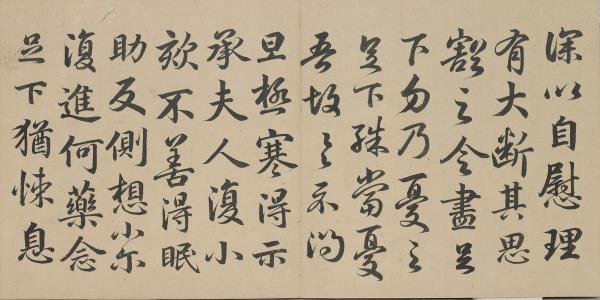 深以自慰理
有大斷其思
豁之令盡足
下勿乃憂之
足下殊當憂
吾故具示問
旦極寒得示
承夫人復小
欬不善得眠
助反側想小尔
復進何藥念
足下猶悚息